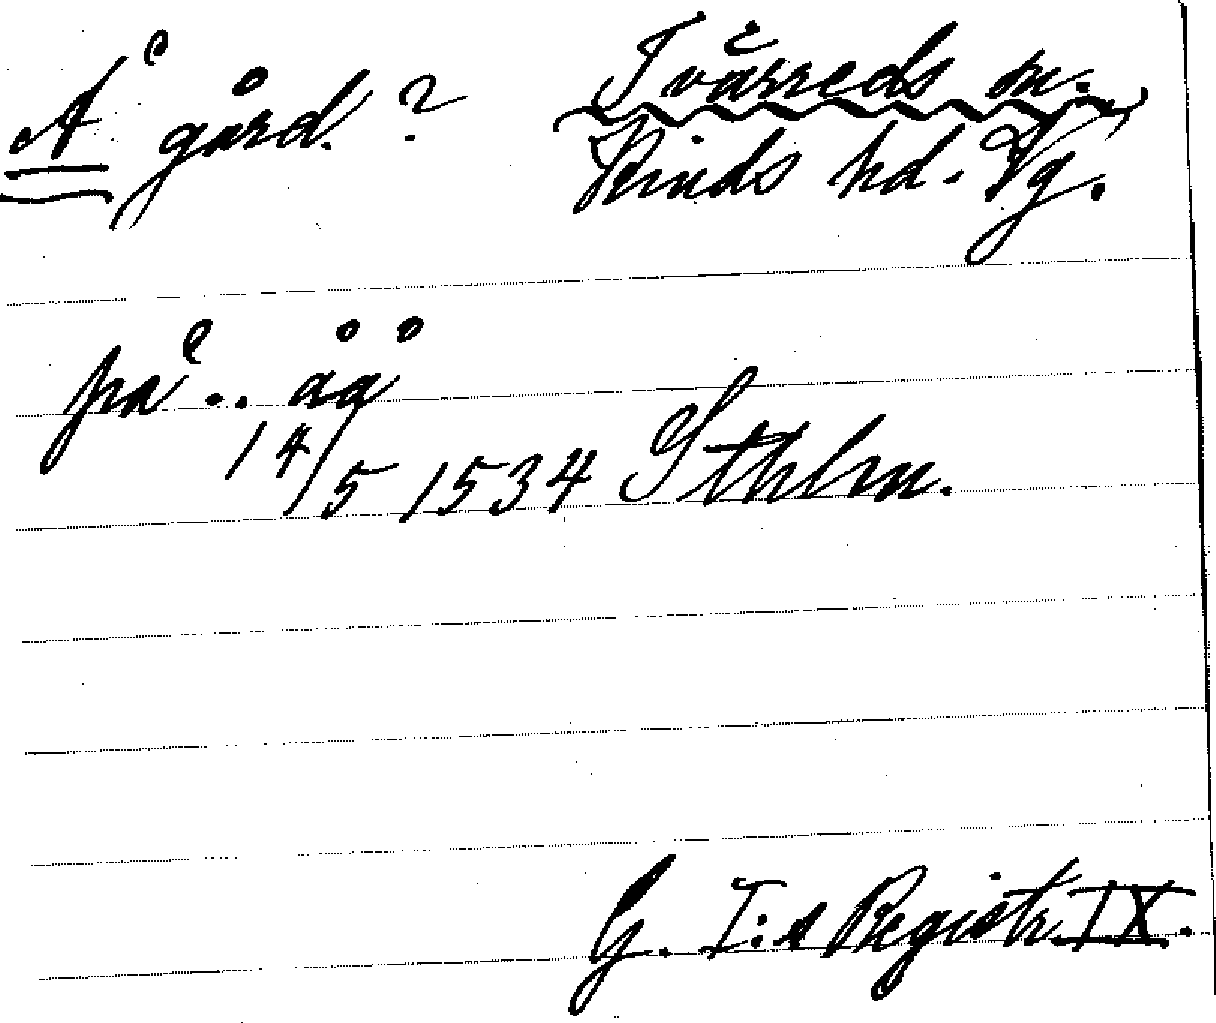 Å gård. ? Tvärreds sn.
Kinds hd. Vg.
på .. åå
14/5 1534 Sthlm.
G. I:s Registr. IX.